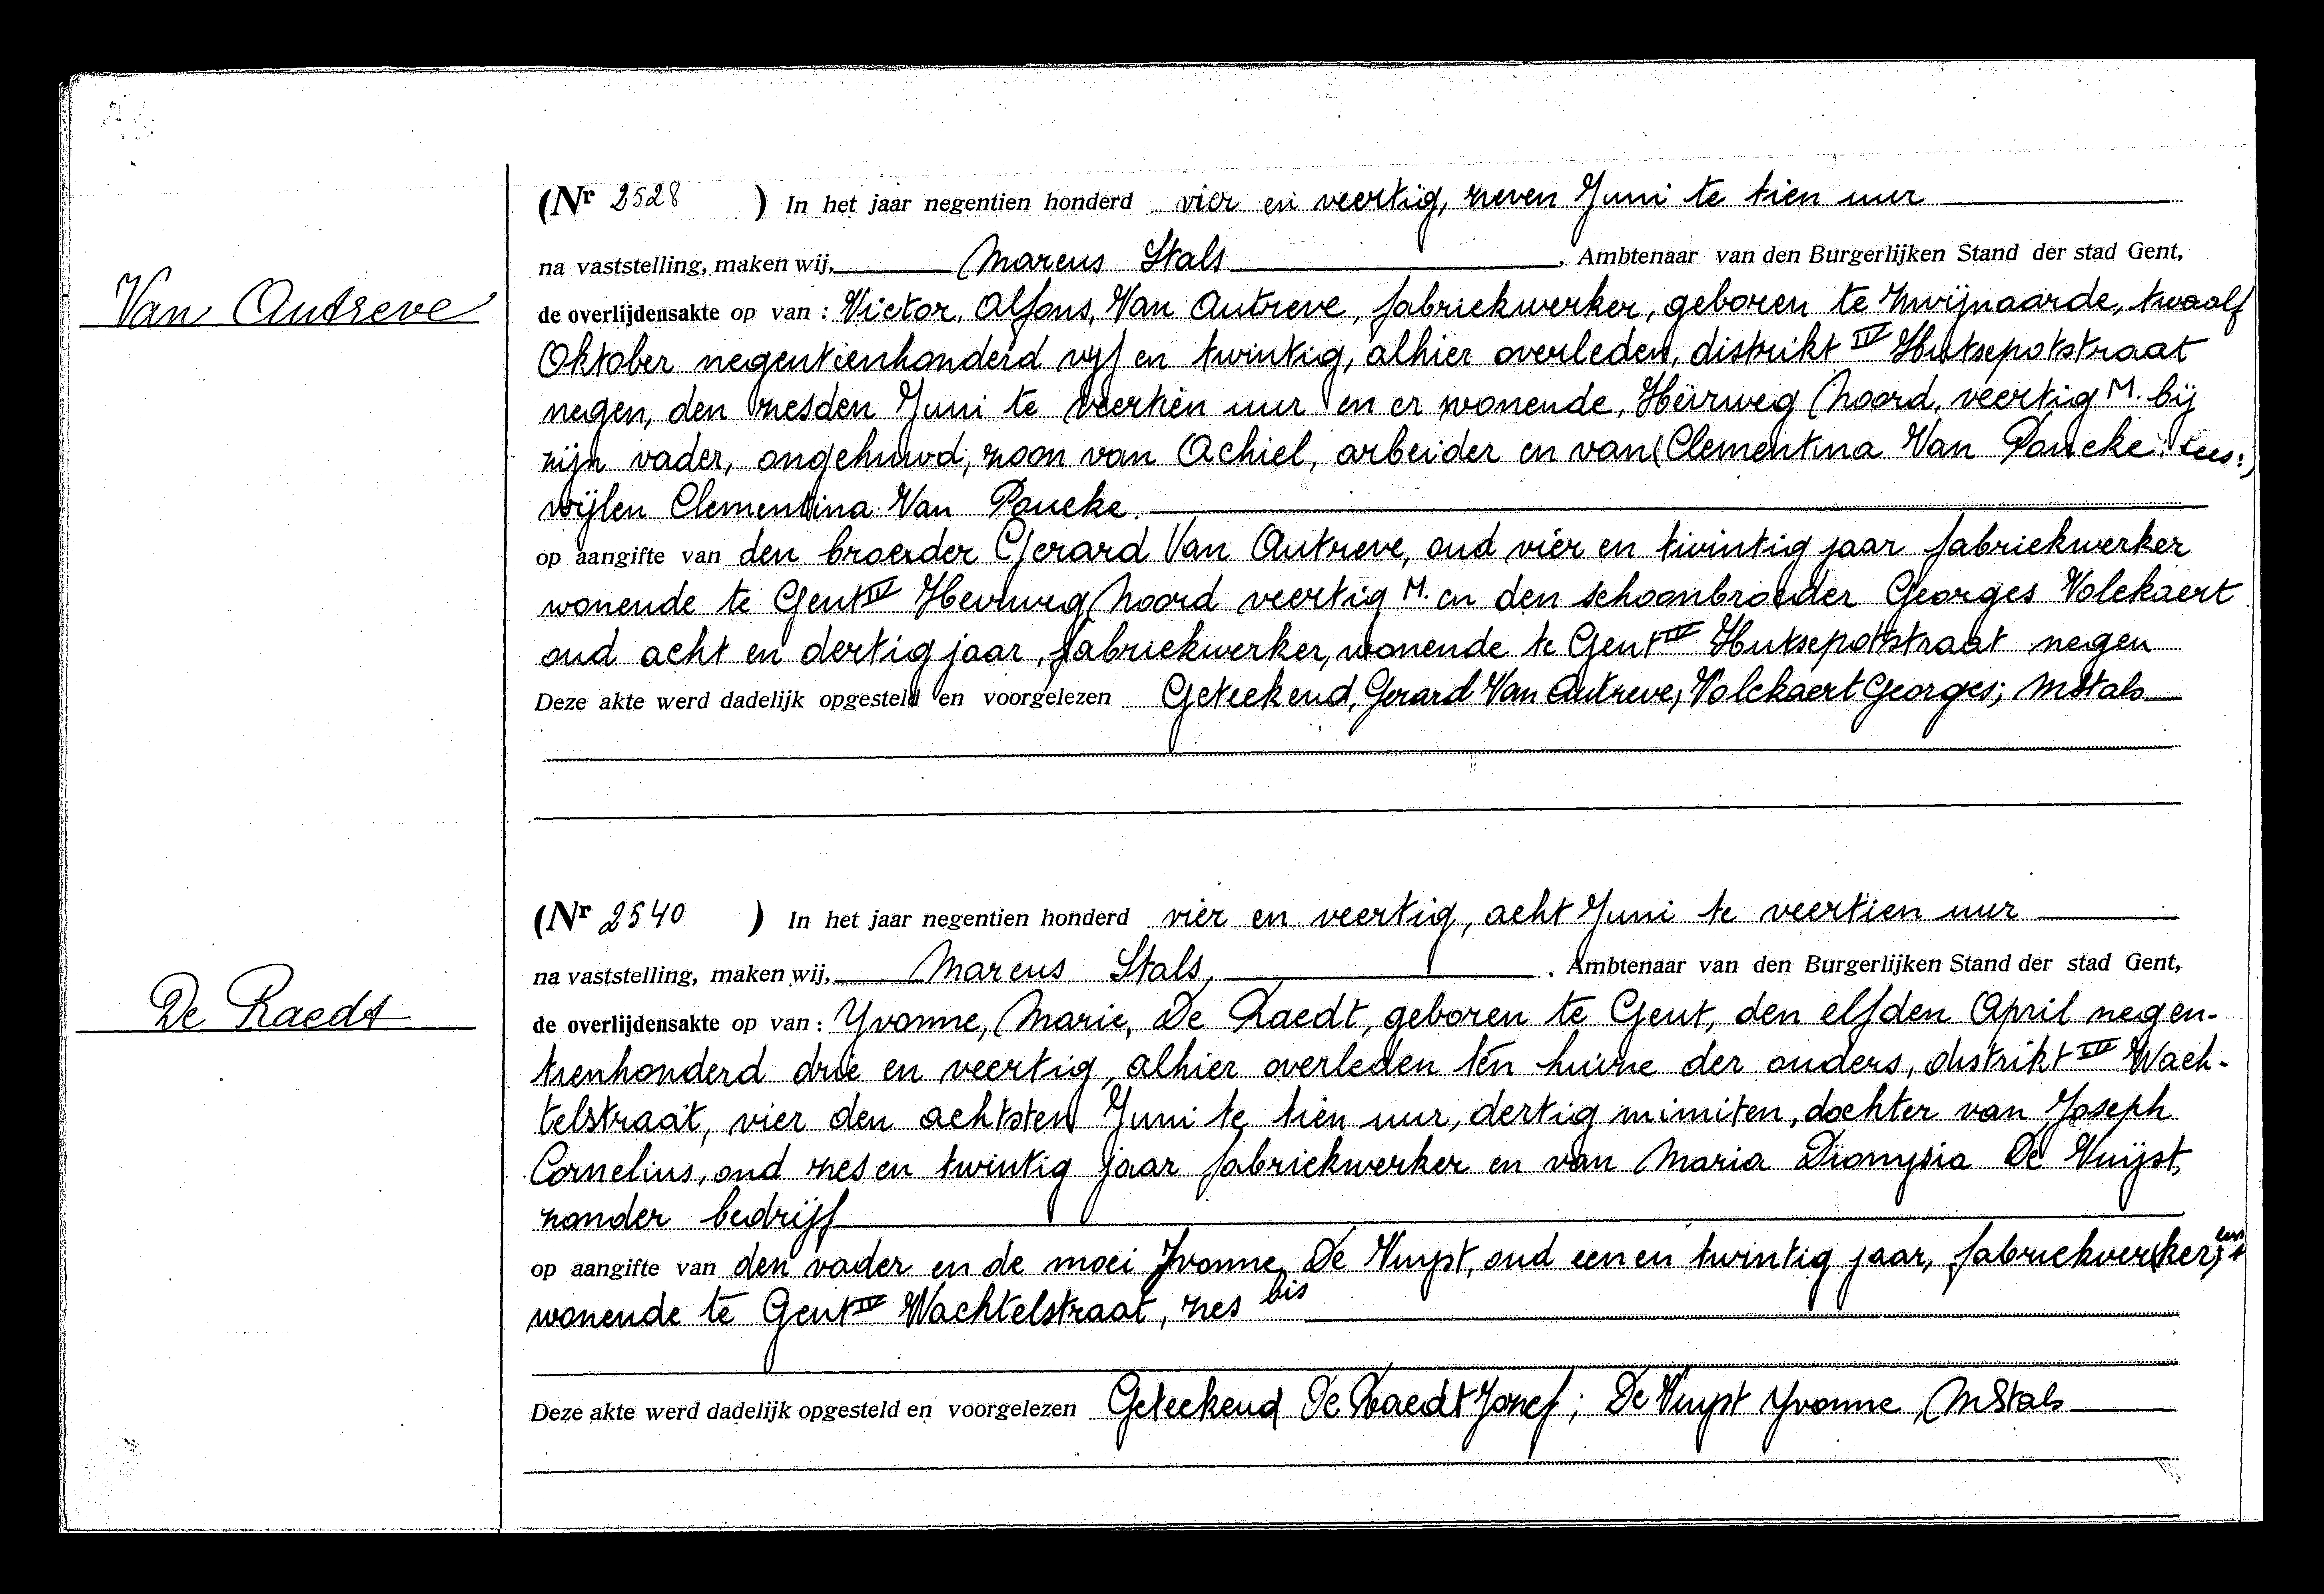 (Nr 2528 ) In het jaar negentien honderd vier en veertig, zeven Juni te tien uur
na vaststelling, maken wij, Marcus Stals, Ambtenaar van den Burgerlijken Stand der stad Gent,
Van Autreve
de overlijdensakte op van : Victor, Alfons, Van Autreve, fabriekwerker, geboren te Zwijnaarde, twaalf
Oktober negentienhonderd vijf en twintig, alhier overleden, distrikt IV Hutsepotstraat
negen, den zesden Juni te veertien uur en er wonende, Heirweg Noord, veertig M. bij
zijn vader, ongehuwd, zoon van Achiel, arbeider en van (Clementina Van Poucke: lees:)
wijlen Clementina Van Poucke.
op aangifte van den broeder Gerard Van Autreve, oud vier en twintig jaar fabriekwerker
wonende te Gent IV Heirweg Noord veertig M. en den schoonbroeder Georges Volckaert
oud acht en dertig jaar, fabriekwerker, wonende te Gent IV Hutsepotstraat negen
Deze akte werd dadelijk opgesteld en voorgelezen Geteekend, Gerard Van Autreve; Volckaert Georges; MStals
(Nr 2540 ) In het jaar negentien honderd vier en veertig, acht Juni te veertien uur
na vaststelling, maken wij, Marcus Stals, , Ambtenaar van den Burgerlijken Stand der stad Gent,
De Raedt
de overlijdensakte op van : Yvonne, Marie, De Raedt, geboren te Gent, den elfden April negen-
tienhonderd drie en veertig, alhier overleden ten huize der ouders, distrikt IV Wach-
telstraat, vier den achtsten Juni te tien uur, dertig minuten, dochter van Joseph
Cornelius, oud zes en twintig jaar fabriekwerker en van Maria Dionysia De Vuijst,
zonder bedrijf
op aangifte van den vader en de moei Yvonne De Vuyst, oud een en twintig jaar, fabriekwer(ker; lees
wonende te Gent IV Wachtelstraat, zes bis
Deze akte werd dadelijk opgesteld en voorgelezen Geteekend De Raedt Jozef; De Vuyst Yvonne, MStals